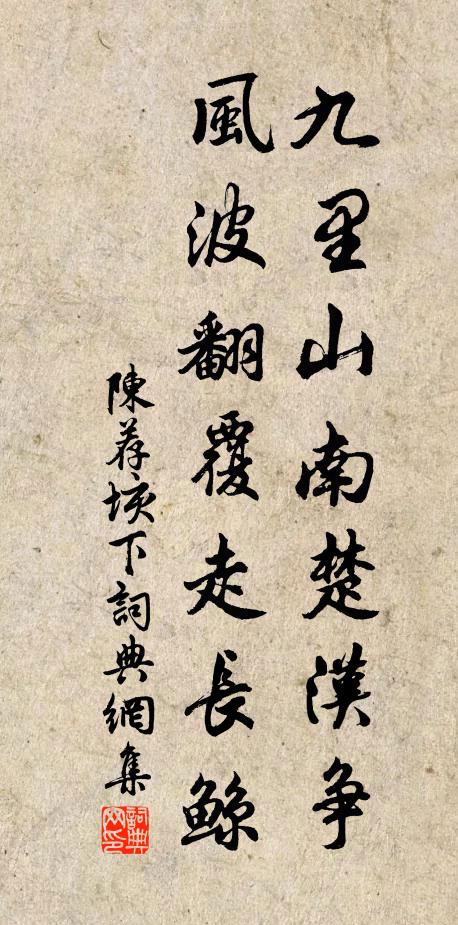 九里山南楚漢爭
風波翻覆走長鯨
陳荐垓下詞典網集
詞典网印